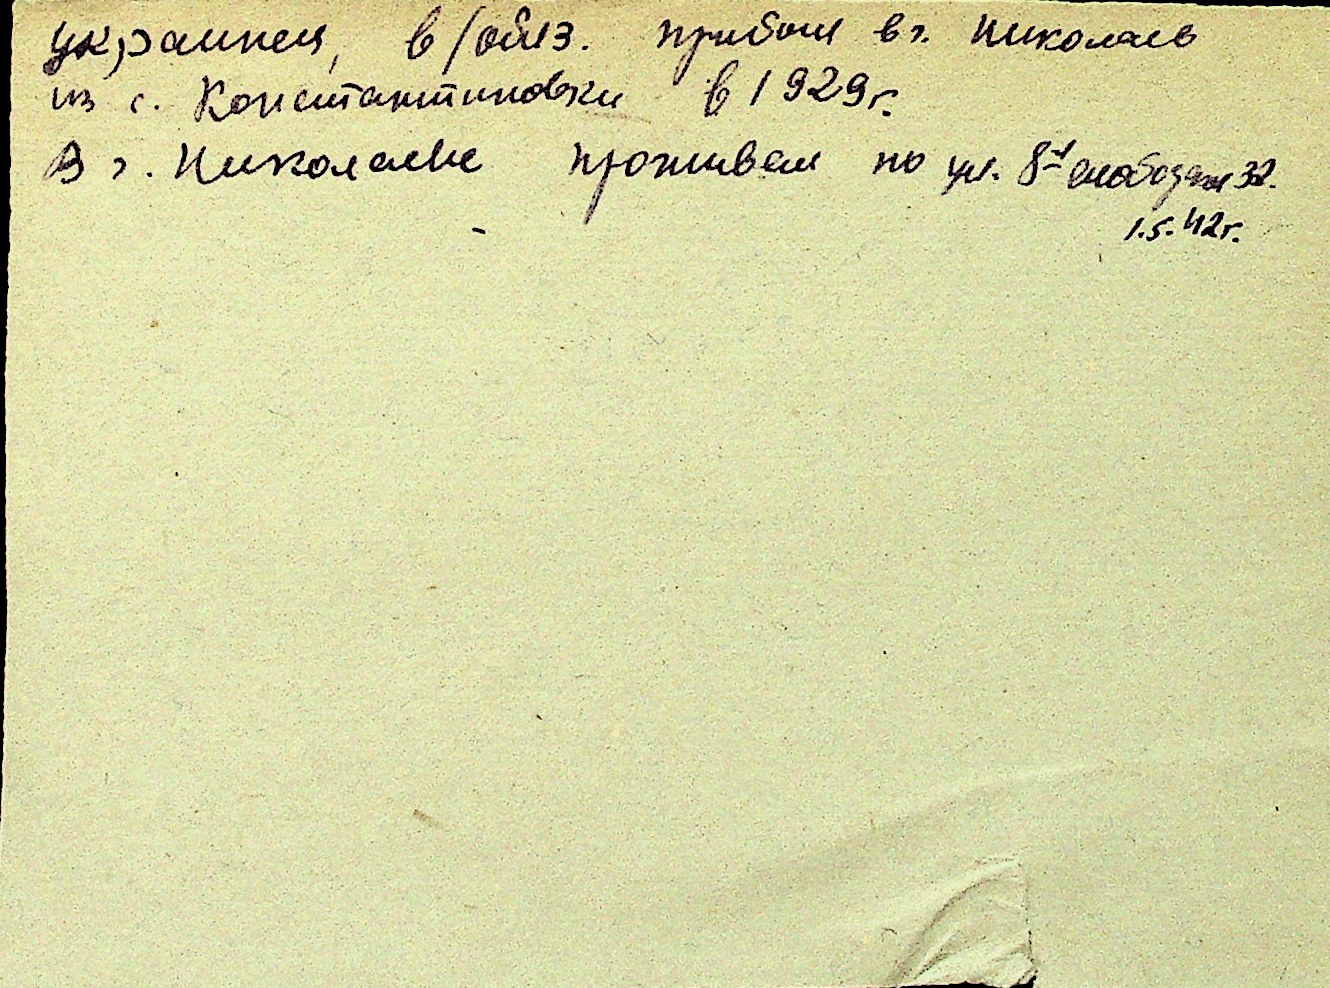 украинец, в/обяз. прибыл в г. Николаев
из с. Константиновки в 1929 г.
В г. Николаеве проживал по ул. 8-я слободская 32.
1.5.42 г.